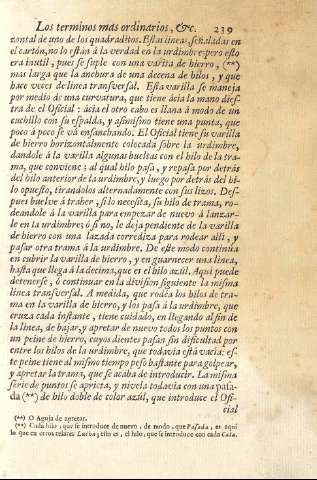 Los terminos mas ordinarios, &c. 239
zontal de uno de los quadraditos. Estas lineas, señaladas en
el cartón, no lo están á la verdad en la urdimbre; pero esto
era inutil, pues se suple con una varita de hierro, (**)
mas larga que la anchura de una decena de hilos, y que
hace veces de linea transversal. Esta varilla se maneja
por medio de una curvatura, que tiene ácia la mano dies-
tra de el Oficial: ácia el otro cabo es llana á modo de un
cuchillo con su espalda, y asimismo tiene una punta, que
poco á poco se vá ensanchando. El Oficial tiene su varilla
de hierro horizontalmente colocada sobre la urdimbre,
dandole á la varilla algunas bueltas con el hilo de la tra-
ma, que conviene; al qual hilo pasa, y repasa por detrás
del hilo anterior de la urdimbre, y luego por detrás del hi-
lo opuesto, tirandolos alternadamente con sus lizos. Des-
pues buelve á traher, si lo necesita, su hilo de trama, ro-
deandole á la varilla para empezar de nuevo á lanzar-
le en la urdimbre; ó si no, le deja pendiente de la varilla
de hierro con una lazada corrediza para rodear alli, y
pasar otra trama á la urdimbre. De este modo continúa
en cubrir la varilla de hierro, y en guarnecer una linea,
hasta que llega á la decima, que es el hilo azúl. Aqui puede
detenerse, ó continuar en la division siguiente la misma
linea transversal. A medida, que rodéa los hilos de tra-
ma en la varilla de hierro, y los pasa á la urdimbre, que
cruza cada instante, tiene cuidado, en llegando al fin de
la linea, de bajar, y apretar de nuevo todos los puntos con
un peine de hierro, cuyos dientes pasan sin dificultad por
entre los hilos de la urdimbre, que todavia está vacía: es-
te peine tiene al mismo tiempo peso bastante para golpear,
y apretar la trama, que se acaba de introducir. La misma
serie de puntos se aprieta, y nivela todavia con una pasa-
da (**) de hilo doble de color azúl, que introduce el Ofi-
cial
(**) O Aguja de apretar.
(**) Cada hilo, que se introduce de nuevo, de modo, que Pasada, es aqui
lo que en otros telares